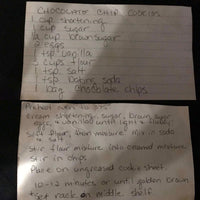 CHOCOLATE CHIP COOKIES
1 cup shortening
1 cup sugar
1 cup brown sugar
2 eggs
1 tsp vanilla
3 cups flour
1 tsp salt
1 tsp baking soda
1 bag chocolate chips
Preheat oven to 375°
Cream shortening, sugar, brown sugar
eggs, & vanilla until light & fluffy
Sift flour, from mixture mix in soda
& salt
Stir flour mixture into creamed mixture
Stir in chips
Place on ungreased cookie sheet.
10-12 minutes or until golden brown
*put rack on middle shelf